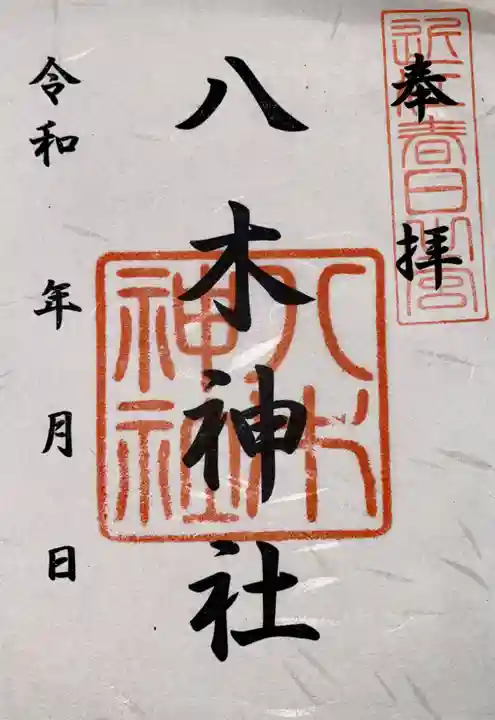 奉拝
近江春日之宮
八木神社
八木神社
令和 年 月 日